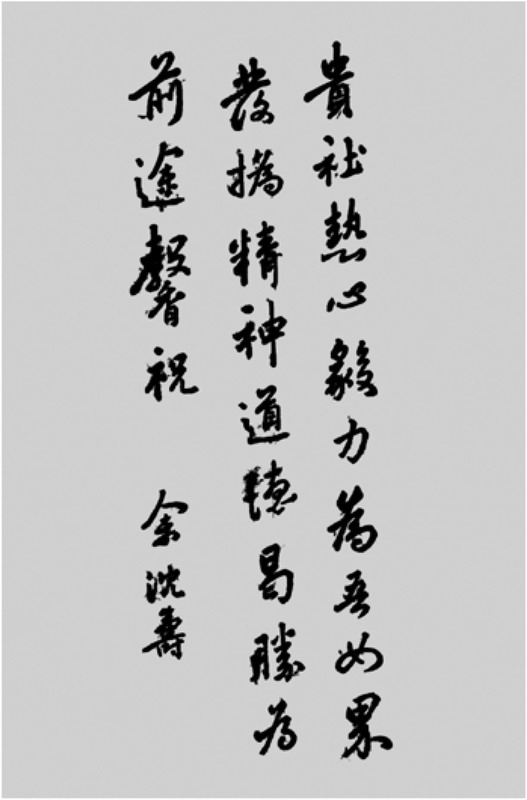 貴社熱心毅力為吾女界
發撝精神道德曷勝為
前途馨祝
余沈壽